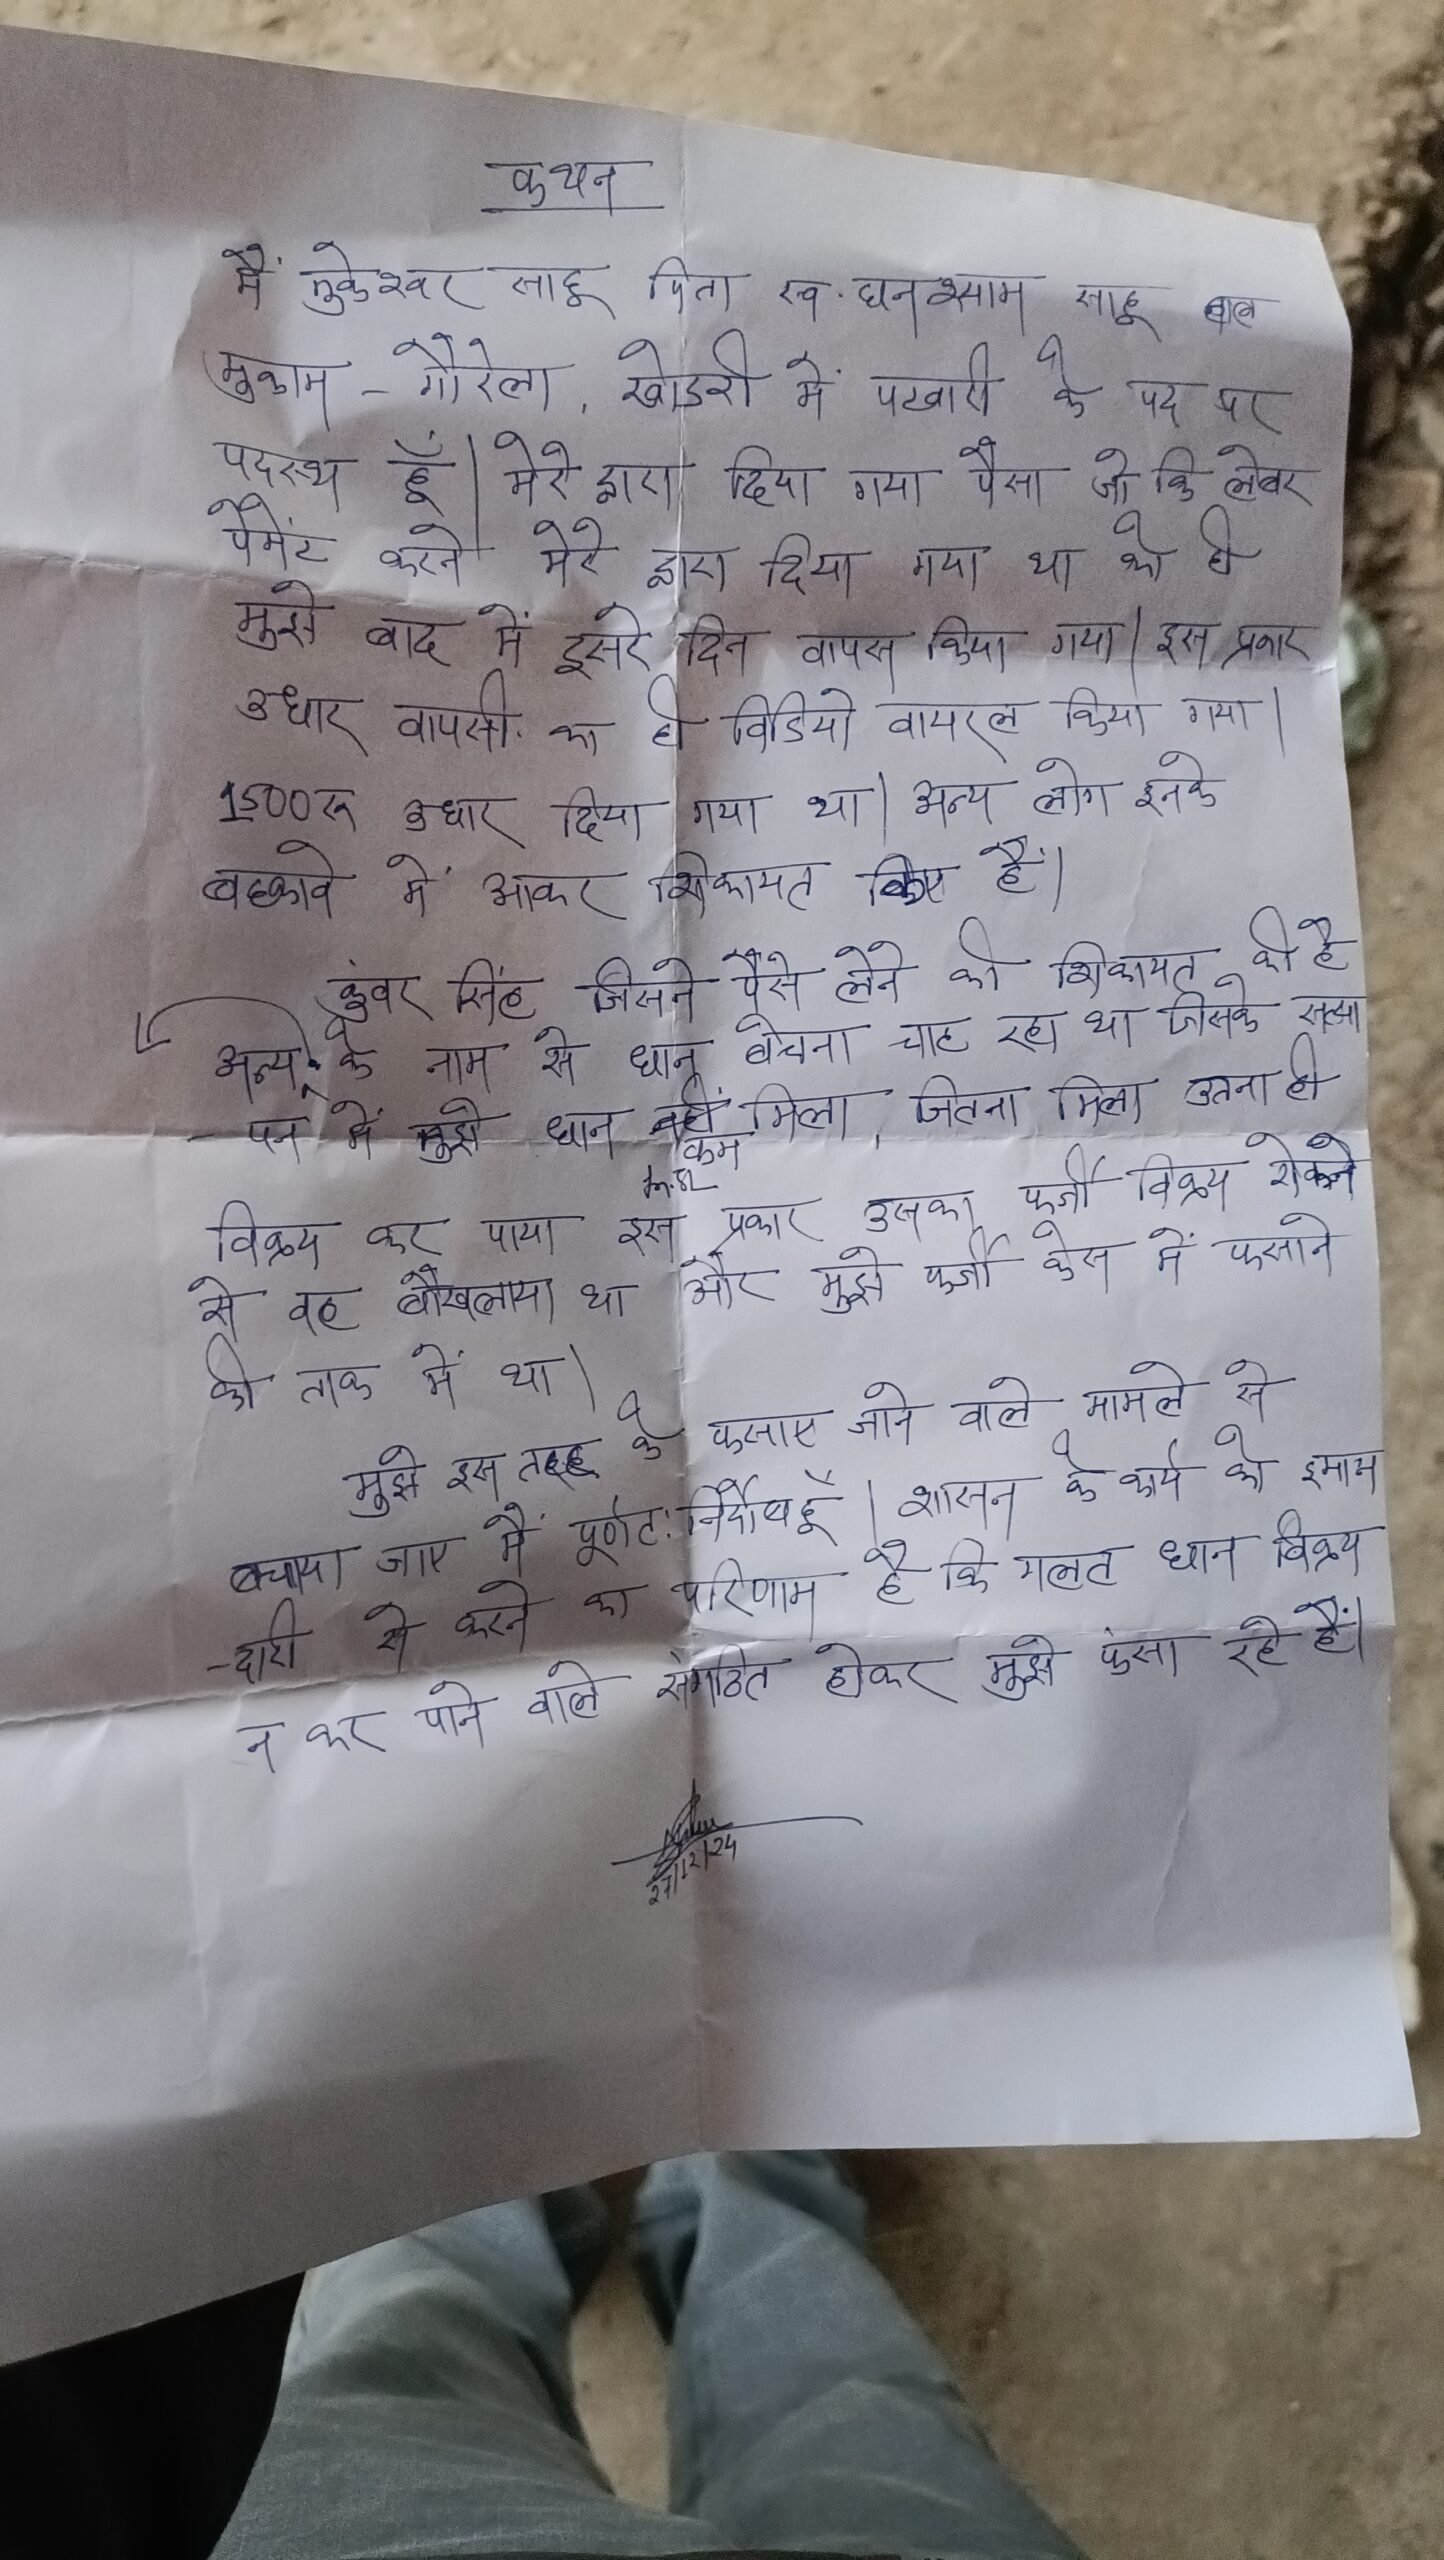 कथन
मैं मुकेश्वर साहू पिता स्व. घनश्याम साहू हाल
मुकाम - गौरेला, खोडरी में पटवारी के पद पर
पदस्थ हूँ। मेरे द्वारा दिया गया पैसा जो कि लेबर
पैमेंट करने मेरे द्वारा दिया गया था को ही
मुझे बाद में दुसरे दिन वापस किया गया। इस प्रकार
उधार वापसी का ही विडियो वायरल किया गया।
1500रू उधार दिया गया था। अन्य लोग इनके
बहकावे में आकर शिकायत किए हैं।
कुंवर सिंह जिसने पैसे लेने की शिकायत की है
अन्य के नाम से धान बेचना चाह रहा था जिसके सत्या
- पन में मुझे धान नहीं मिला, जितना मिला उतना ही
कम
विक्रय कर पाया इस प्रकार उसका फर्जी विक्रय रोकने
से वह बौखलाया था और मुझे फर्जी केस में फसाने
की ताक में था।
मुझे इस तरह के फसाए जाने वाले मामले से
बचाया जाए मैं पूर्णत: निर्दोष हूँ। शासन के कार्य को इमान
-दारी से करने का परिणाम है कि गलत धान विक्रय
न कर पाने वाले संगठित होकर मुझे फंसा रहे हैं।
27/12/24